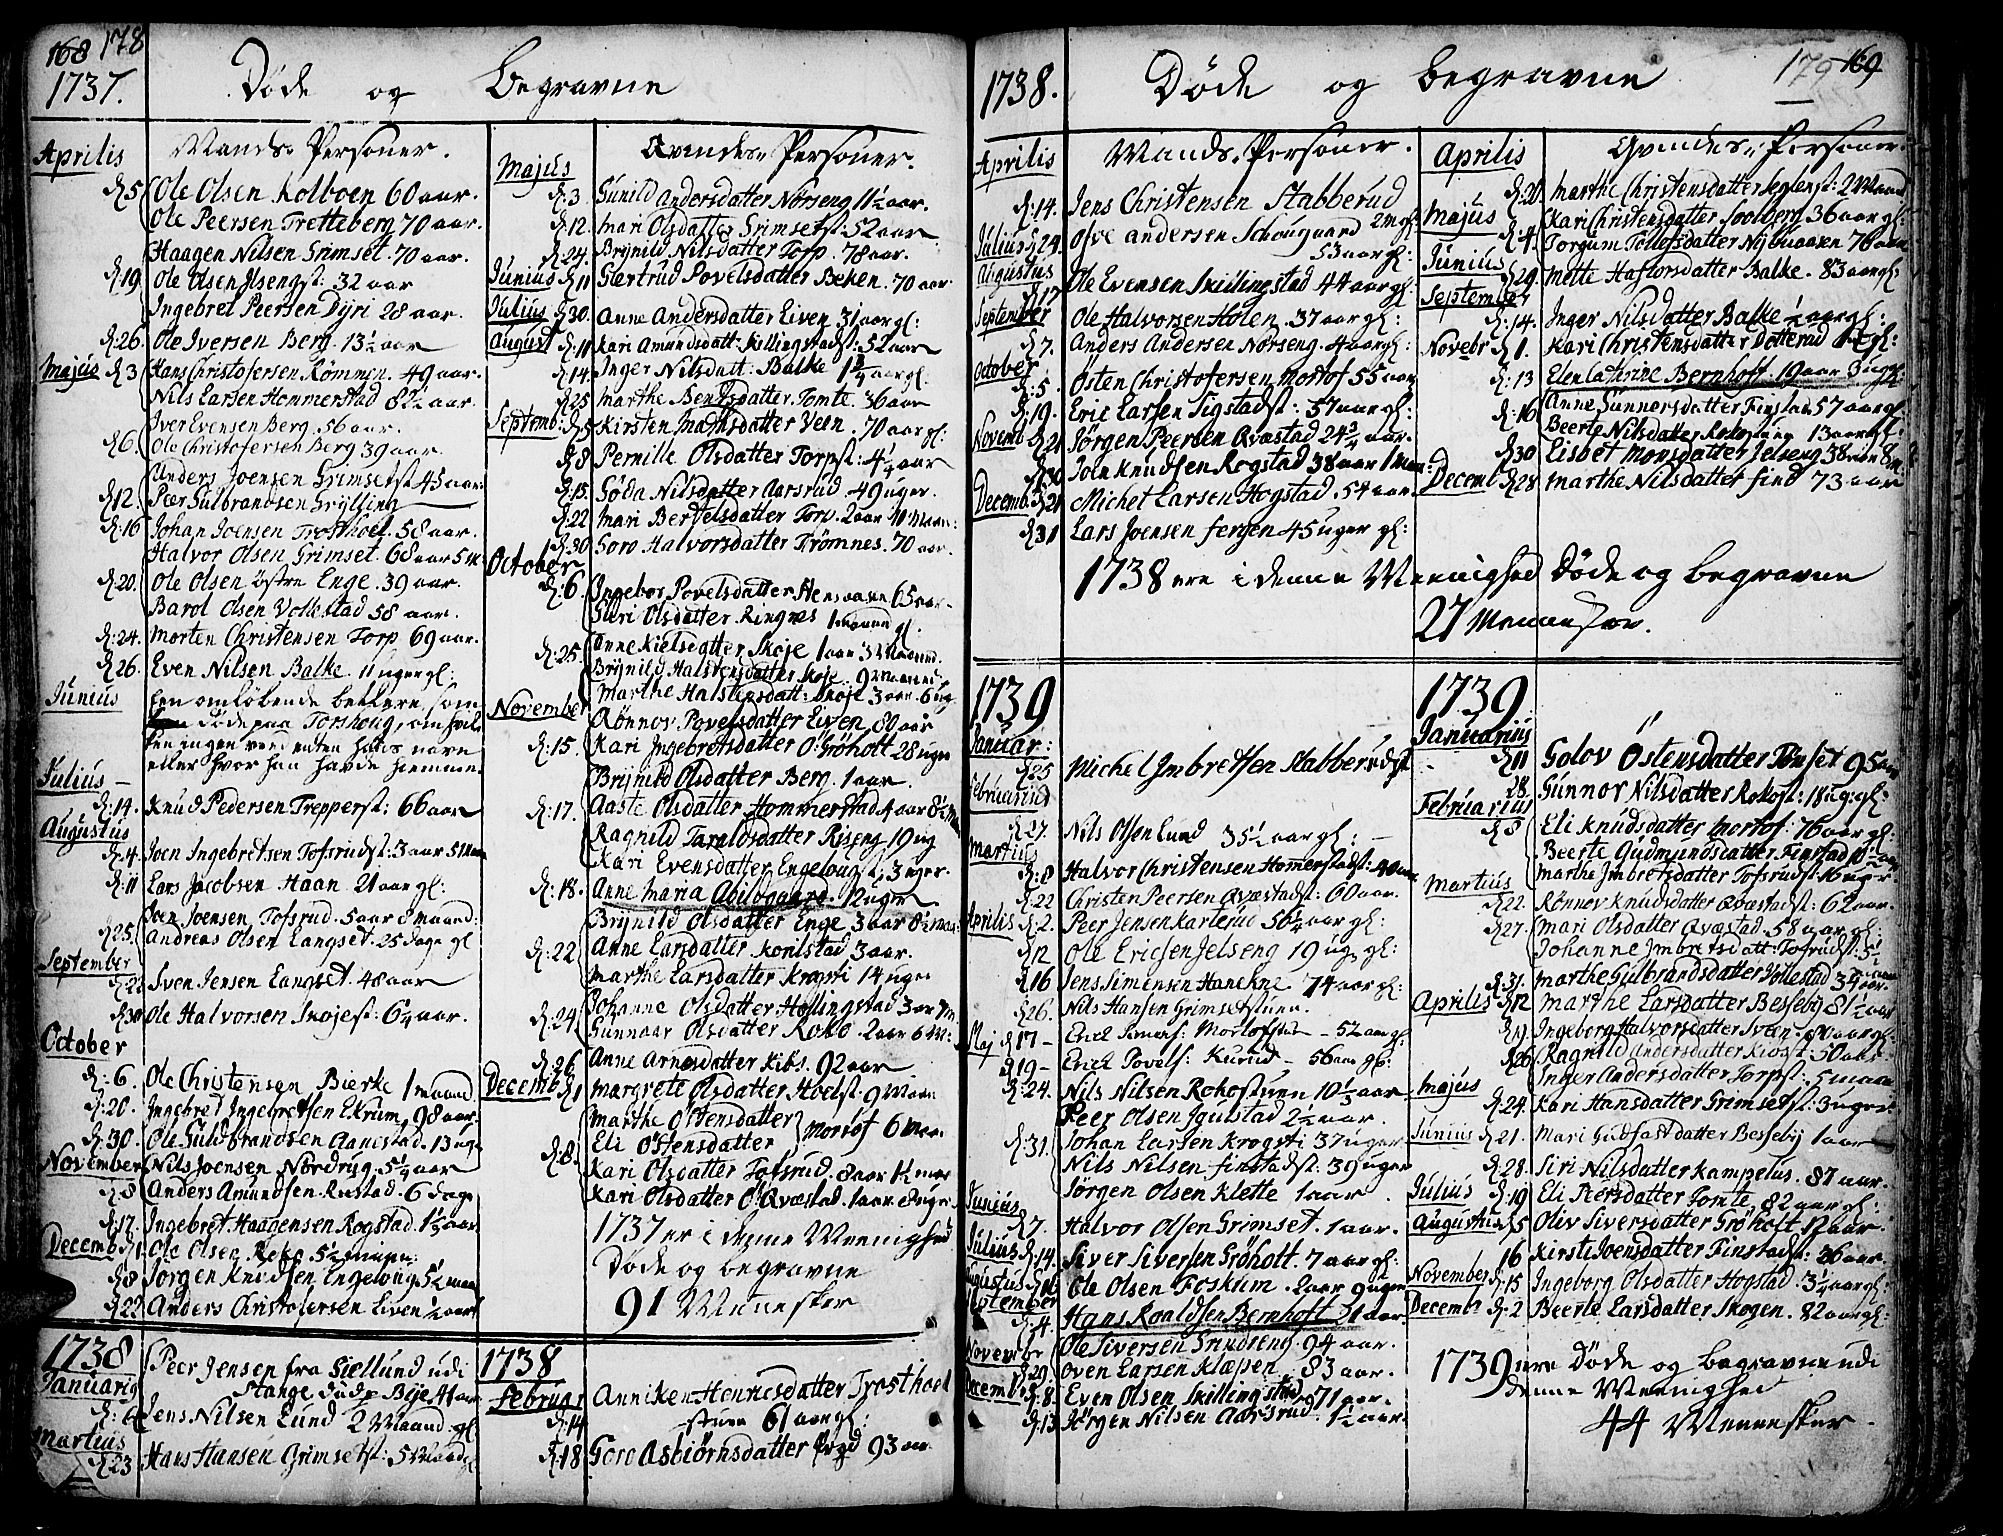 168 178
1737. Døde og Begravne
Aprilis
Mands-Personer.
d. 5 Ole Olsen Kolboen 60 aar.
Ole Peersen Tretteberg 70 aar.
Haagen Nilsen Grimset. 70 aar.
d. 19 Ole Olsen Ilsengst: 32 aar
Ingebret Peersen Dyri 28 aar.
d. 26. Ole Iversen Berg. 13½ aar
Majus d. 3 Hans Christofersen Rømmen. 49 aar.
Nils Larsen Hommerstad 82½ aar.
Iver Evensen Berg. 56 aar.
d. 6. Ole Christofersen Berg 39 aar.
Anders Joensen Grimsetst 45 aar:
d. 12. Peer Gulbrandsen Grylling
d. 16 Johan Joensen Trosthoel. 58 aar.
Halvor Olsen Grimset. 68 aar 5 M:
d. 20. Ole Olsen østre Enge. 39 aar.
Barol Olsen Vollestad 58 aar.
d. 24. Morten Christensen Torp 69 aar.
d. 26. Even Nilsen Balke. 11 uger gl:
Junius
En omløbende betlere, som
døde paa Torshoug, om hvil
ken ingen veed enten hans navn
eller hvor han havde hiemme.
Julius
d. 14. Knud Pedersen Trepperst: 66 aar
Augustus
d. 4. Joen Ingebretsen Tofsrudst: 3 aar 5 Maan
d. 11 Lars Jacobsen Haan 21 aar gl:
Joen Joensen Tofsrud. 5 aar 8 maand:
d. 25. Andreas Olsen Langset. 25 dage gl
September
d. 22 Sven Jensen Langset. 48 aar
d. 30 Ole Halvorsen Skojest: 6¼ aar.
October
d. 6. Ole Christensen Bierke 1 maand.
d. 20. Ingebred Ingebretsen Ekrum. 98 aar.
d. 30. Ole Guldbrandsen Aanestad. 13 uge
November Nils Joensen Nordrug. 5¼ aar
d. 8 Anders Amundsen Rustad. 6 dage
d. 17. Ingebret Haagensen Rogstad. 1½ aar
Decemb d. 1 Ole Olsen Roko 5½
d. 8 Jørgen Knudsen Engeloug. 5½ maan
d. 22 Anders Christofersen Liven ½ aar
Qvindes-Personer.
Majus
d: 3 Gunild Andersdatter Nørseng 11½ aar.
d. 12. Mari Olsdatter Grimsetst: 52 aar
d. 24 Brynild Nilsdatter Torp. 78 aar.
Junius d. 11 Giertrud Povelsdatter Beken. 70 aar
Julius d. 30. Anne Andersdatter Liven 31 aar gl:
August d. 11 Kari Amundsdatt: Skillingstadst: 52 aar
d. 14. Inger Nilsdatt: Balke 1¾ aar gl:
d. 25 Marthe Bendsdatter Tomte. 36 aar
Septemb: d. 5 Kirsten Madtsdatter Veen. 70 aar gl:
d. 8 Pernille Olsdatter Torpst: 4¼ aar
d. 15. Gøda Nilsdatter Aarsrud. 49 uger.
d. 22 Mari Bertelsdatter Torp. 2 aar 11 Maan:
d. 30. Goro Halvorsdatter Trømnes. 70 aar.
October
d. 6. Ingebor Povelsdatter Hensaasen 65 aar.
Siri Olsdatter Ringnes 1 maane gl.
d. 25. Anne Kielsdatter Skoje 1 aar 3 Maaned.
Brynild Halstensdatter Skoje. 9 Maaned
Marthe Halstensdatt: Skoje 3 aar 6 ug
November Rønnov Povelsdatter Liven 80 aar
d. 15. Kari Ingebretsdatter O: Grøholt 28 uger
Brynild Olsdatter Berg. 1 aar.
d. 17. Aaste Olsdatter Hommerstad 4 aar 8½ M
Ragnild Taraldsdatter Riseng 19 ug
Kari Evensdatter Engeloug 3 uger.
d. 18. Anne Maria Abildgaard. 12 uger
Brynild Olsdatter Enge 3 aar 8½ Ma:
d. 22 Anne Larsdatter Korilstad 3 aar.
Marthe Larsdatter Krogsti 14 uger
d. 24. Johanne Olsdatter Hollingstad 3 aar 7 M.
Gunnaar Olsdatter Roko. 2 aar 6 M:
d. 26 Anne Arnesdatter Kibs. 92 aar
Decemb d. 1 Margrete Olsdatter Hoelst: 9 Maan
Marthe Østensdatter
Eli Østensdatter Mortof 6 Maa.
d. 8. Kari Olsdatter Tofsrud. 8 aar 1½ mar
Kari Olsdatter O: Qvæstad. 1 aar 8 uger
1737 er i denne Meenighed
Døde og begravne
91 Mennesker
1738
Januarij Peer Jensen fra Siellund udi
Stange døde paa Bye 41 aar
d. 6 Jens Nilsen Lund 2 Maand gl.
Martius
d. 23 Hans Hansen Grimsetst: 5 Maand gl
1738
Februar
d. 14 Anniken Henricsdatter Trosthoel
stuen 61 aar gl:
d. 18 Goro Asbiørnsdatter 93 aar
179 169
1738. Døde og begravne
Aprilis
Mands-Personer.
d. 14. Jens Christensen Stabberud
2 M gl
Julius d. 24. Ofve Andersen Schougaard
53 aar gl:
Augustus
d. 17 Ole Evensen Skillingstad 44 aar gl:
September Ole Halvorsen Holen. 37 aar gl:
d. 7. Anders Andersen Nørseng. 4 aar gl:
October
d. 5. Østen Christofersen Mortof 55 aar
d. 19. Eric Larsen Sigstadst: 57 aar gl:
Novemb d. 21 Jørgen Peersen Qvæstad 24¾ aar.
d. 30 Joen Knudsen Rogstad 38 aar 1 Maa:
Decemb. d. 21 Michel Larsen Hogstad. 54 aar
d. 31 Lars Joensen Fergen 45 uger gl:
Qvindes-Personer
Aprilis
d. 20. Marthe Christensdatter Seglenst: 2 Maand
Majus Kari Christensdatter Soelberg 36 aar gl
d. 4. Torgum Tollofsdatter Nybuaasen 76 aar
Junius
d. 29. Mette Haftorsdatter Balke. 83 aar gl:
September
d. 14. Inger Nilsdatter Balke ½ aar gl:
Novebr d. 1. Kari Christensdatter Dotterud gl:
d. 13 Elen Cathrine Bernhoft. 19 aar 3 uger
d. 16 Anne Gunnersdatter Finstad 57 aar gl:
Beerte Nilsdatter Roko 13 aar gl:
d. 30 Lisbet Monsdatter Jelseng 38 aar 8 m.
Decemb d. 28 Marthe Nilsdatter Find 73 aar
1738 ere i denne Meenighed Døde og begravne
27 Mennesker.
1739
Januar:
d. 25 Michel Imbretsen Stabberudst
Februarius
d. 27. Nils Olsen Lund 35½ aar gl:
Martius
d. 8 Halvor Christensen Hommerstadst: 40 aar
d. 22 Christen Peersen Qvæstadst: 60 aar.
Aprilis d. 2. Peer Jensen Karterud 56¼ aar gl:
d. 12 Ole Ericsen Jelseng 19 ug gl:
d. 16 Jens Simensen Hanekne 74 aar gl:
d. 26. Nils Hansen Grimsetstuen.
Maj d. 17 - Erich Mortofstuen - 52 aar gl:
d. 19 - Erich Povels: Kurud - 56 aar gl:
d. 24. Nils Nilsen Rokostuen 10½ aar.
Peer Olsen Igulstad 2½ aar.
d. 31. Johan Larsen Krogsti 37 uger
Nils Nilsen Finstadst: 39 uger
Jørgen Olsen Klette 1 aar.
Junius
d. 7. Halvor Olsen Grimset. 1 aar.
Julius d. 14. Siver Siversen Grøholt. 7 aar gl:
Augustus d. 16 Ole Olsen Foskum. 2 aar 9 uger
September Hans Roaldsen Bernhoft 21 aar
d. 4. Ole Siversen Grudseng. 94 aar.
November
d. 29. Oven Larsen Klæpen 83 aar.
Decemb d. 8. Even Olsen Skillingstad 71 aar.
d. 13 Jørgen Nilsen Aarsrud. 1½ aar.
1739
Januarius
d. 11 Golov Østensdatter Tønset 95 aar
28. Gunnor Nilsdatter Rokost: 18 ug: gl:
Februarius
d. 8 Eli Knudsdatter Mortof: 76 aar gl:
Beerte Gudmundsdatter Finstad 10½ aar
Marthe Imbretsdatter Tofsrudst: 16 uger.
Martius
d. 22. Rønnov Knudsdatter Qvæstadst: 62 aar.
d. 27. Mari Olsdatter Qvæstad 58 aar gl:
Johanne Imbretsdatt: Tofsrudst: 5½
d. 31. Marthe Gulbrandsdatter Vollestad 34 aar.
Aprilis d. 12 Marthe Larsdatter Besseby 81½ aar
d. 19. Ingeborg Halvorsdatter Sveen 80 aar gl:
d. 26 Ragnild Andersdatter Krogst: 30 aar
Inger Andersdatter Torpst: 5 maan
Majus
d. 24. Kari Hansdatter Grimsetst: 3 uger.
Junius d. 21. Mari Gudfastdatter Besseby 1 aar
d. 28. Siri Nilsdatter Kampelus. 87 aar.
Julius d. 19 Eli Peersdatter Tomte 82 aar gl:
Augustus d. 5 Oliv Siversdatter Grøholt 12 aar.
16 Kirsti Joensdatter Finstadst: 26 aar.
November d. 15 Ingeborg Olsdatter Hogstad 3¼ aar gl:
Decemb d. 2 Beerte Larsdatter Skogen. 82 aar gl:
1739 ere Døde og begravne udi
denne Meenighed
44 Mennesker.